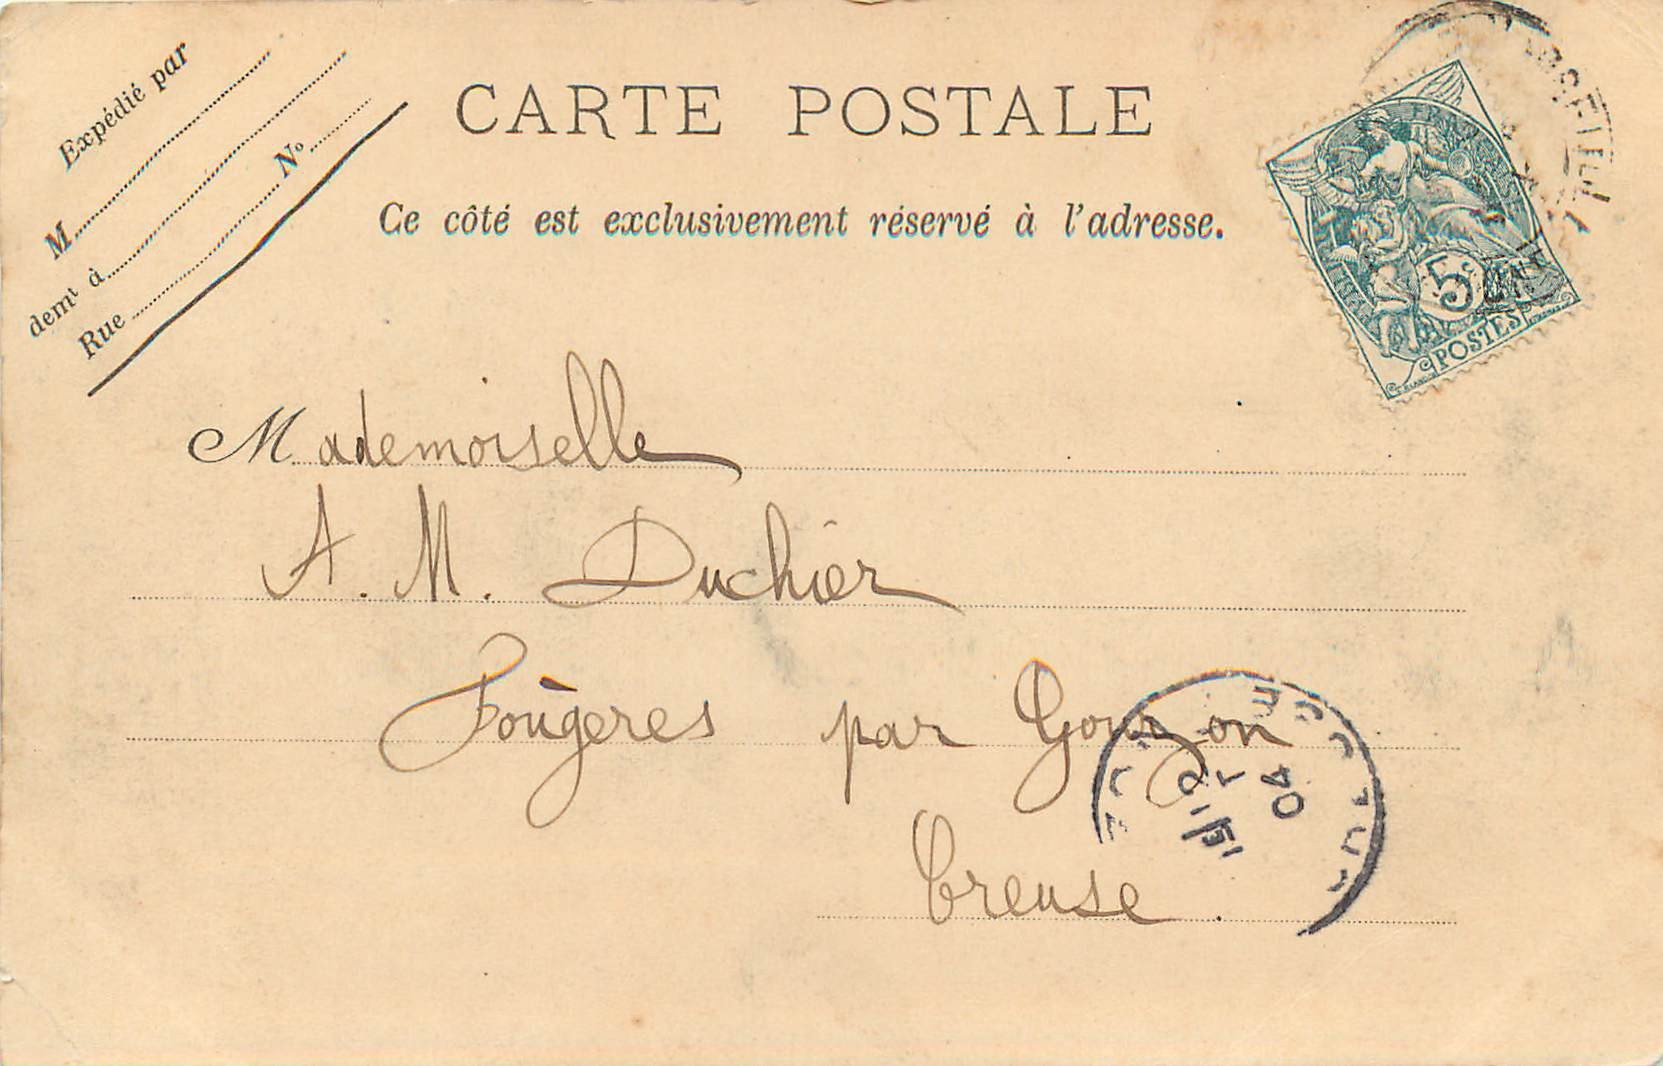 Expédié par
M
demt à
Rue N°
CARTE POSTALE
Ce côté est exclusivement réservé à l'adresse.
5c
POSTES
Mademoiselle
A. M. Duchier
Fougères par Gouzon
Creuse.
04